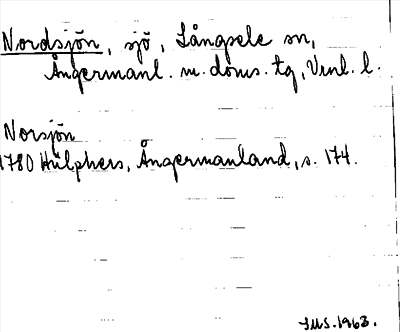 Nordsjön, sjö, Långsele sn,
Ångermanl. m. doms. tg, Vnl. l.
Norsjön
1780 Hülphers, Ångermanland, s. 174.
JMS. 1963.